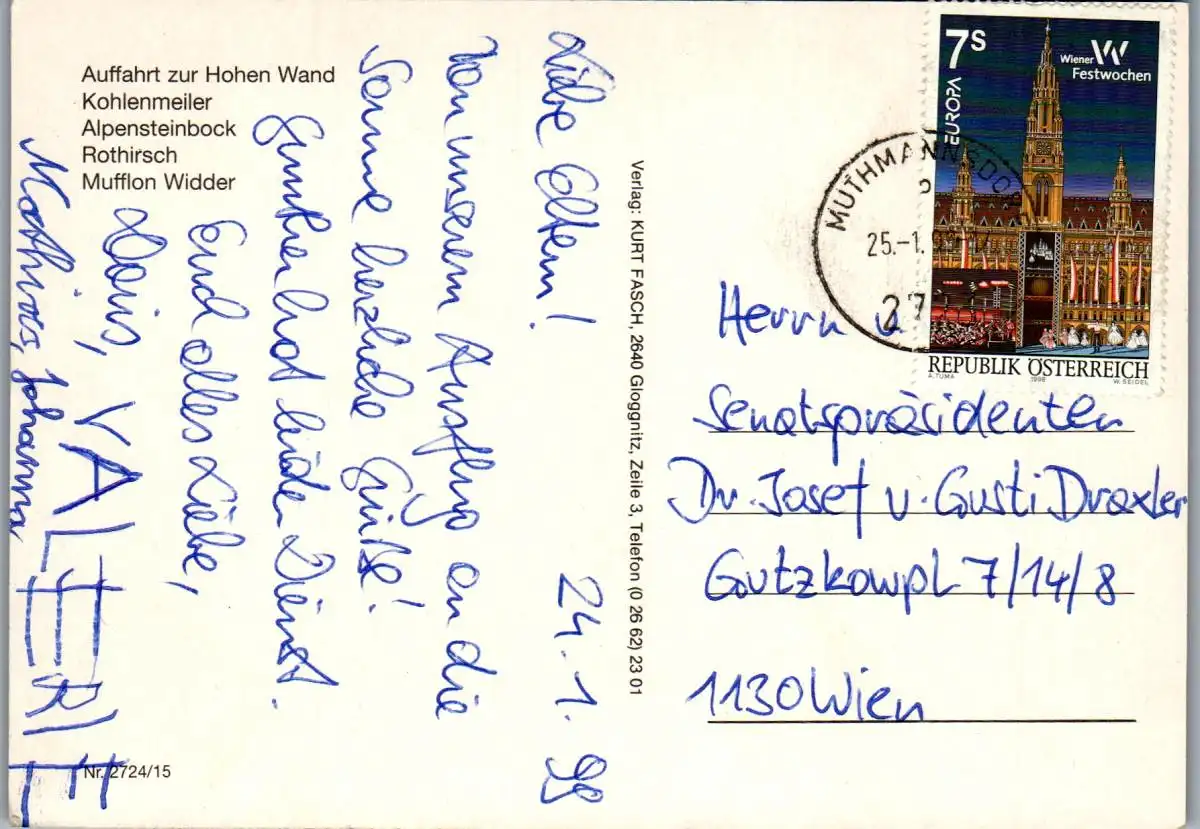 Auffahrt zur Hohen Wand
Kohlenmeiler
Alpensteinbock
Rothirsch
Mufflon Widder
Liebe Eltern! 24. 1. 99
Von unserem Ausflug an die
Sonne herzliche Grüße!
Gunther hat leider Dienst.
Eind alles Liebe,
Doris, VALERIE
Mathias, Johanna
Nr. 2724/15
Verlag: KURT FASCH, 2640 Gloggnitz, Zeile 3, Telefon (0 26 62) 23 01
7S
Wiener
Festwochen
EUROPA
REPUBLIK ÖSTERREICH
A. TUMA 1998 W. SEIDEL
MUTHMANNSDORF
25.-1.
27
Herrn u
Senatspräsidenten
Dr. Josef u. Gusti Draxler
Gutzkowpl 7/14/8
1130 Wien